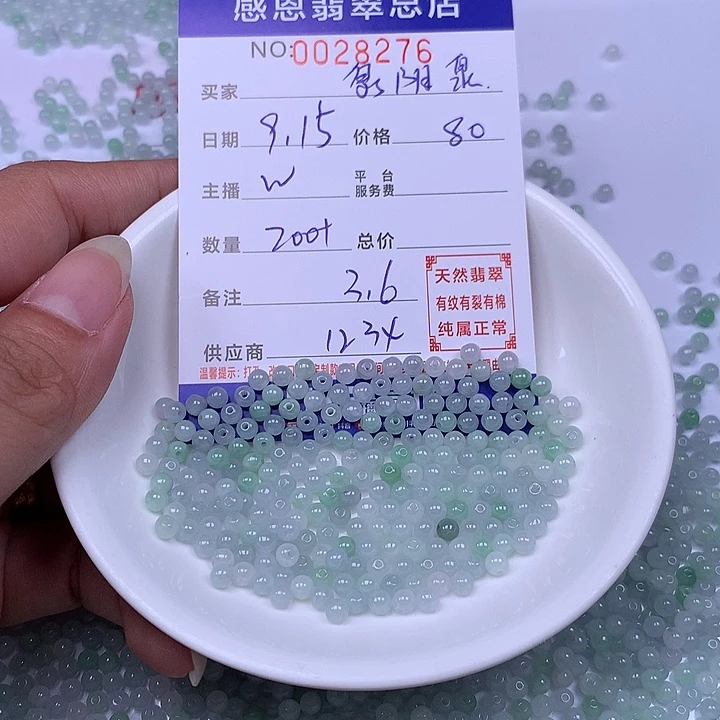 感恩翡翠总店
NO:0028276
买家
日期 9.15 价格 80
主播 W 平台服务费
数量 200+ 总价
备注 3.6
供应商 1234
天然翡翠
有纹有裂有棉
纯属正常
温馨提示: